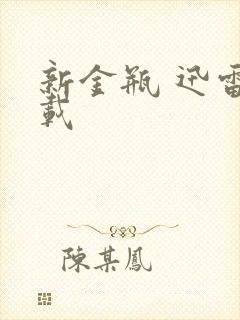 新金瓶 迅雷
載
陳某鳳